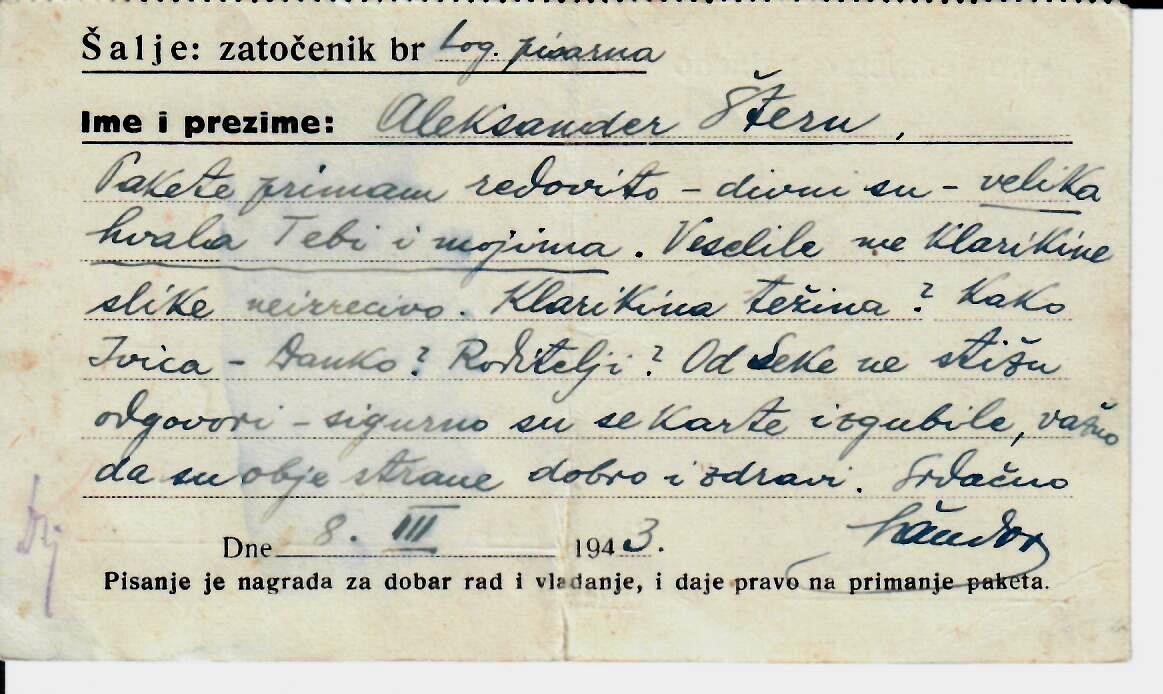 Šalje: zatočenik br Log. pisarna
Ime i prezime: Aleksander Štern,
Pakete primam redovito - divni su - velika
hvala Tebi i mojima. Veselile me Klarikine
slike neizrecivo. Klarikina težina? Kako
Ivica - Danko? Roditelji? Od Seke ne stižu
odgovori - sigurno su se karte izgubile, važno
da su obje strane dobro i zdravi. Srdačno
Dne 8. III 1943. Šándor
Pisanje je nagrada za dobar rad i vladanje, i daje pravo na primanje paketa.